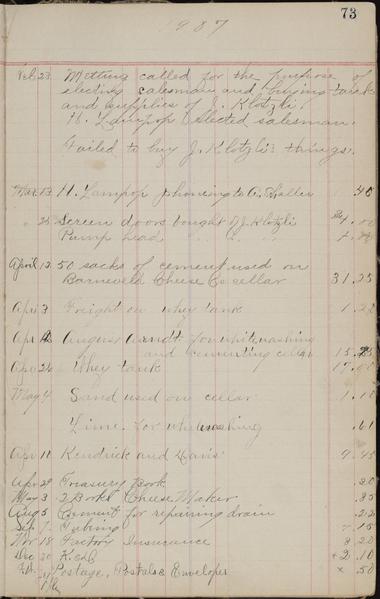 73
1987
Feb 23 Metting called for the purpose of
slecting salesman and buying tank
and supplies of J. Klotzli.
H. Lampop slected salesman.
Failed to buy J. Klotzlis things.
Mar 13 H. Lampop phoneing to A. .40
" 25 Screen doors bought of J. Klotzli
Pump head " " "
April 12 50 sacks of cement used on
Barneveld Cheese Co cellar 31.25
Apri 3 Freight on whey tank
Apri August Arndt for whitewashing
and cementing cellar
Apri 26 Whey tank 17.00
May 4 Sand used on cellar 1.10
Lime for whitewashing .61
Apri 11 Kendrick and Davis 9.45
Apri 29 Treasury Book .20
May 3 2 Books Cheese Maker .35
Aug 5 Cement for repairing drain .22
Sep 7 Tubing 7.15
Mar 18 Factory Insurance 3 20
Dec 20 2.10
Postage, Postals & Envelopes x .50